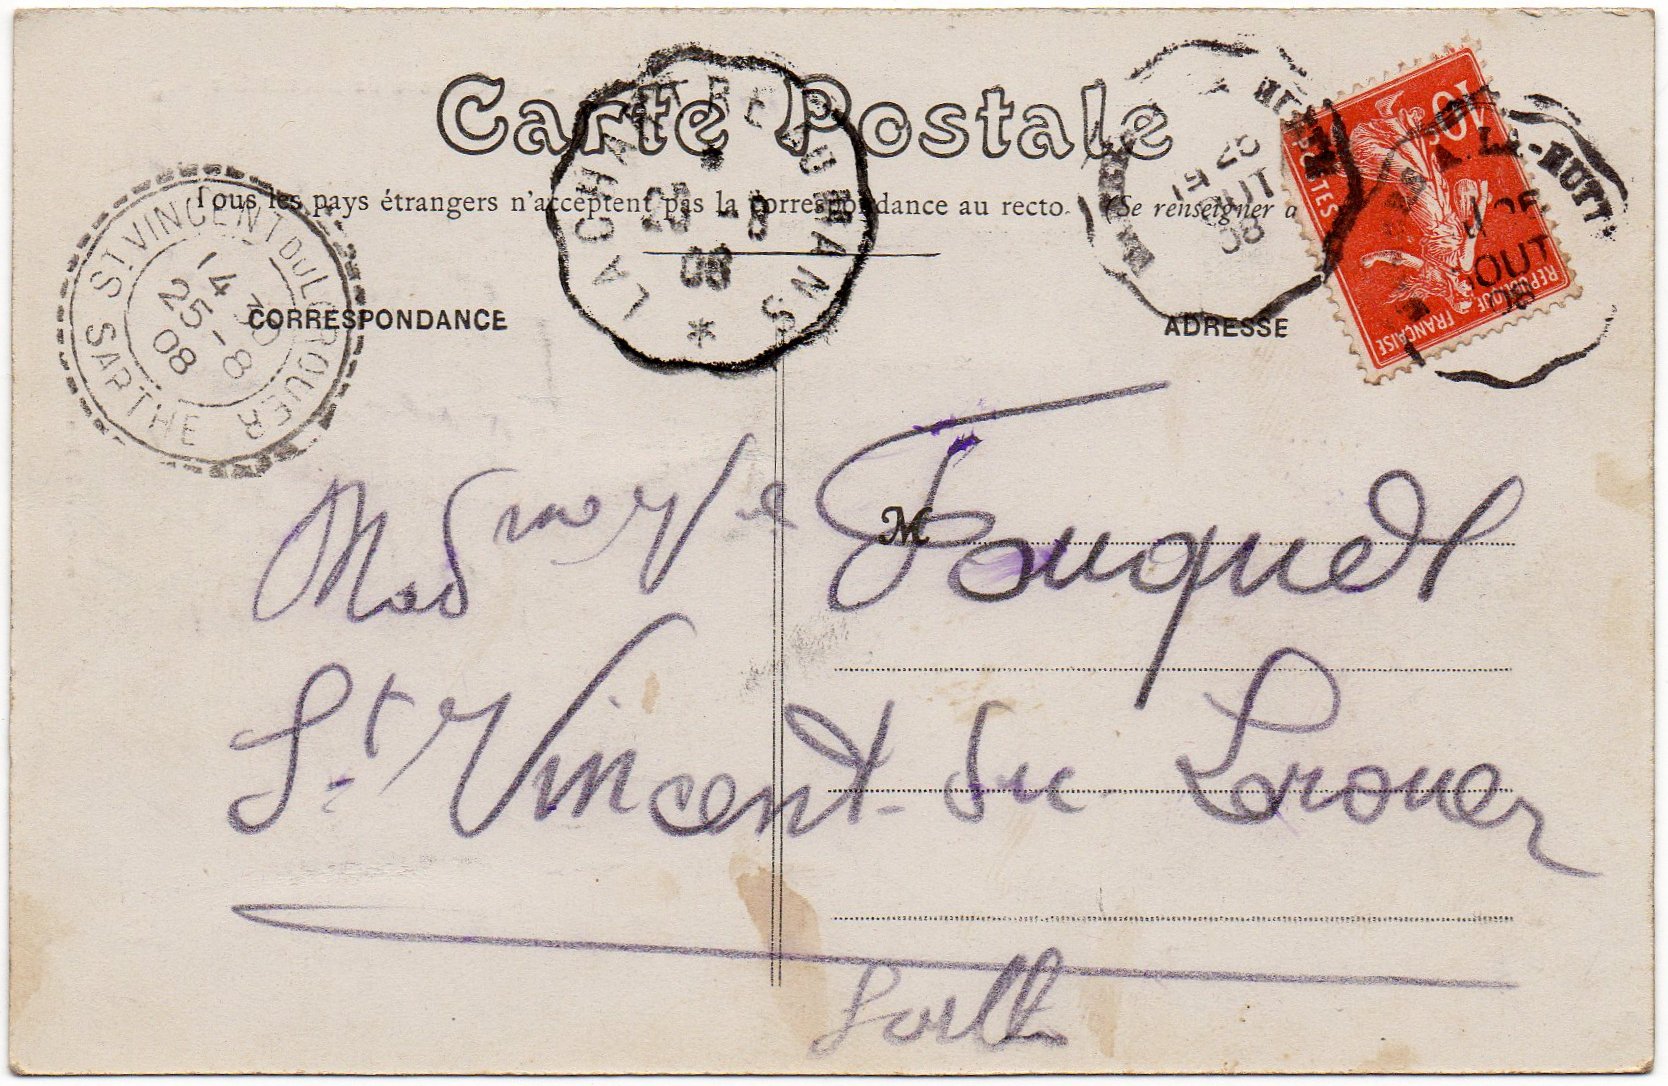 Carte Postale
Tous les pays étrangers n'acceptent pas la correspondance au recto. (Se renseigner a
CORRESPONDANCE
ADRESSE
ST VINCENT DU LOROUER
14 30
25-8
08
SARTHE
LA CHARTRE AU MANS
25-8
08
*
25
AOUT
08
A LA-HUTT
OUT
08
10
POSTES
REPUBLIQUE
FRANÇAISE
Madmoyle M Fouquet
St. Vincent. du. Lorouer
Sarthe